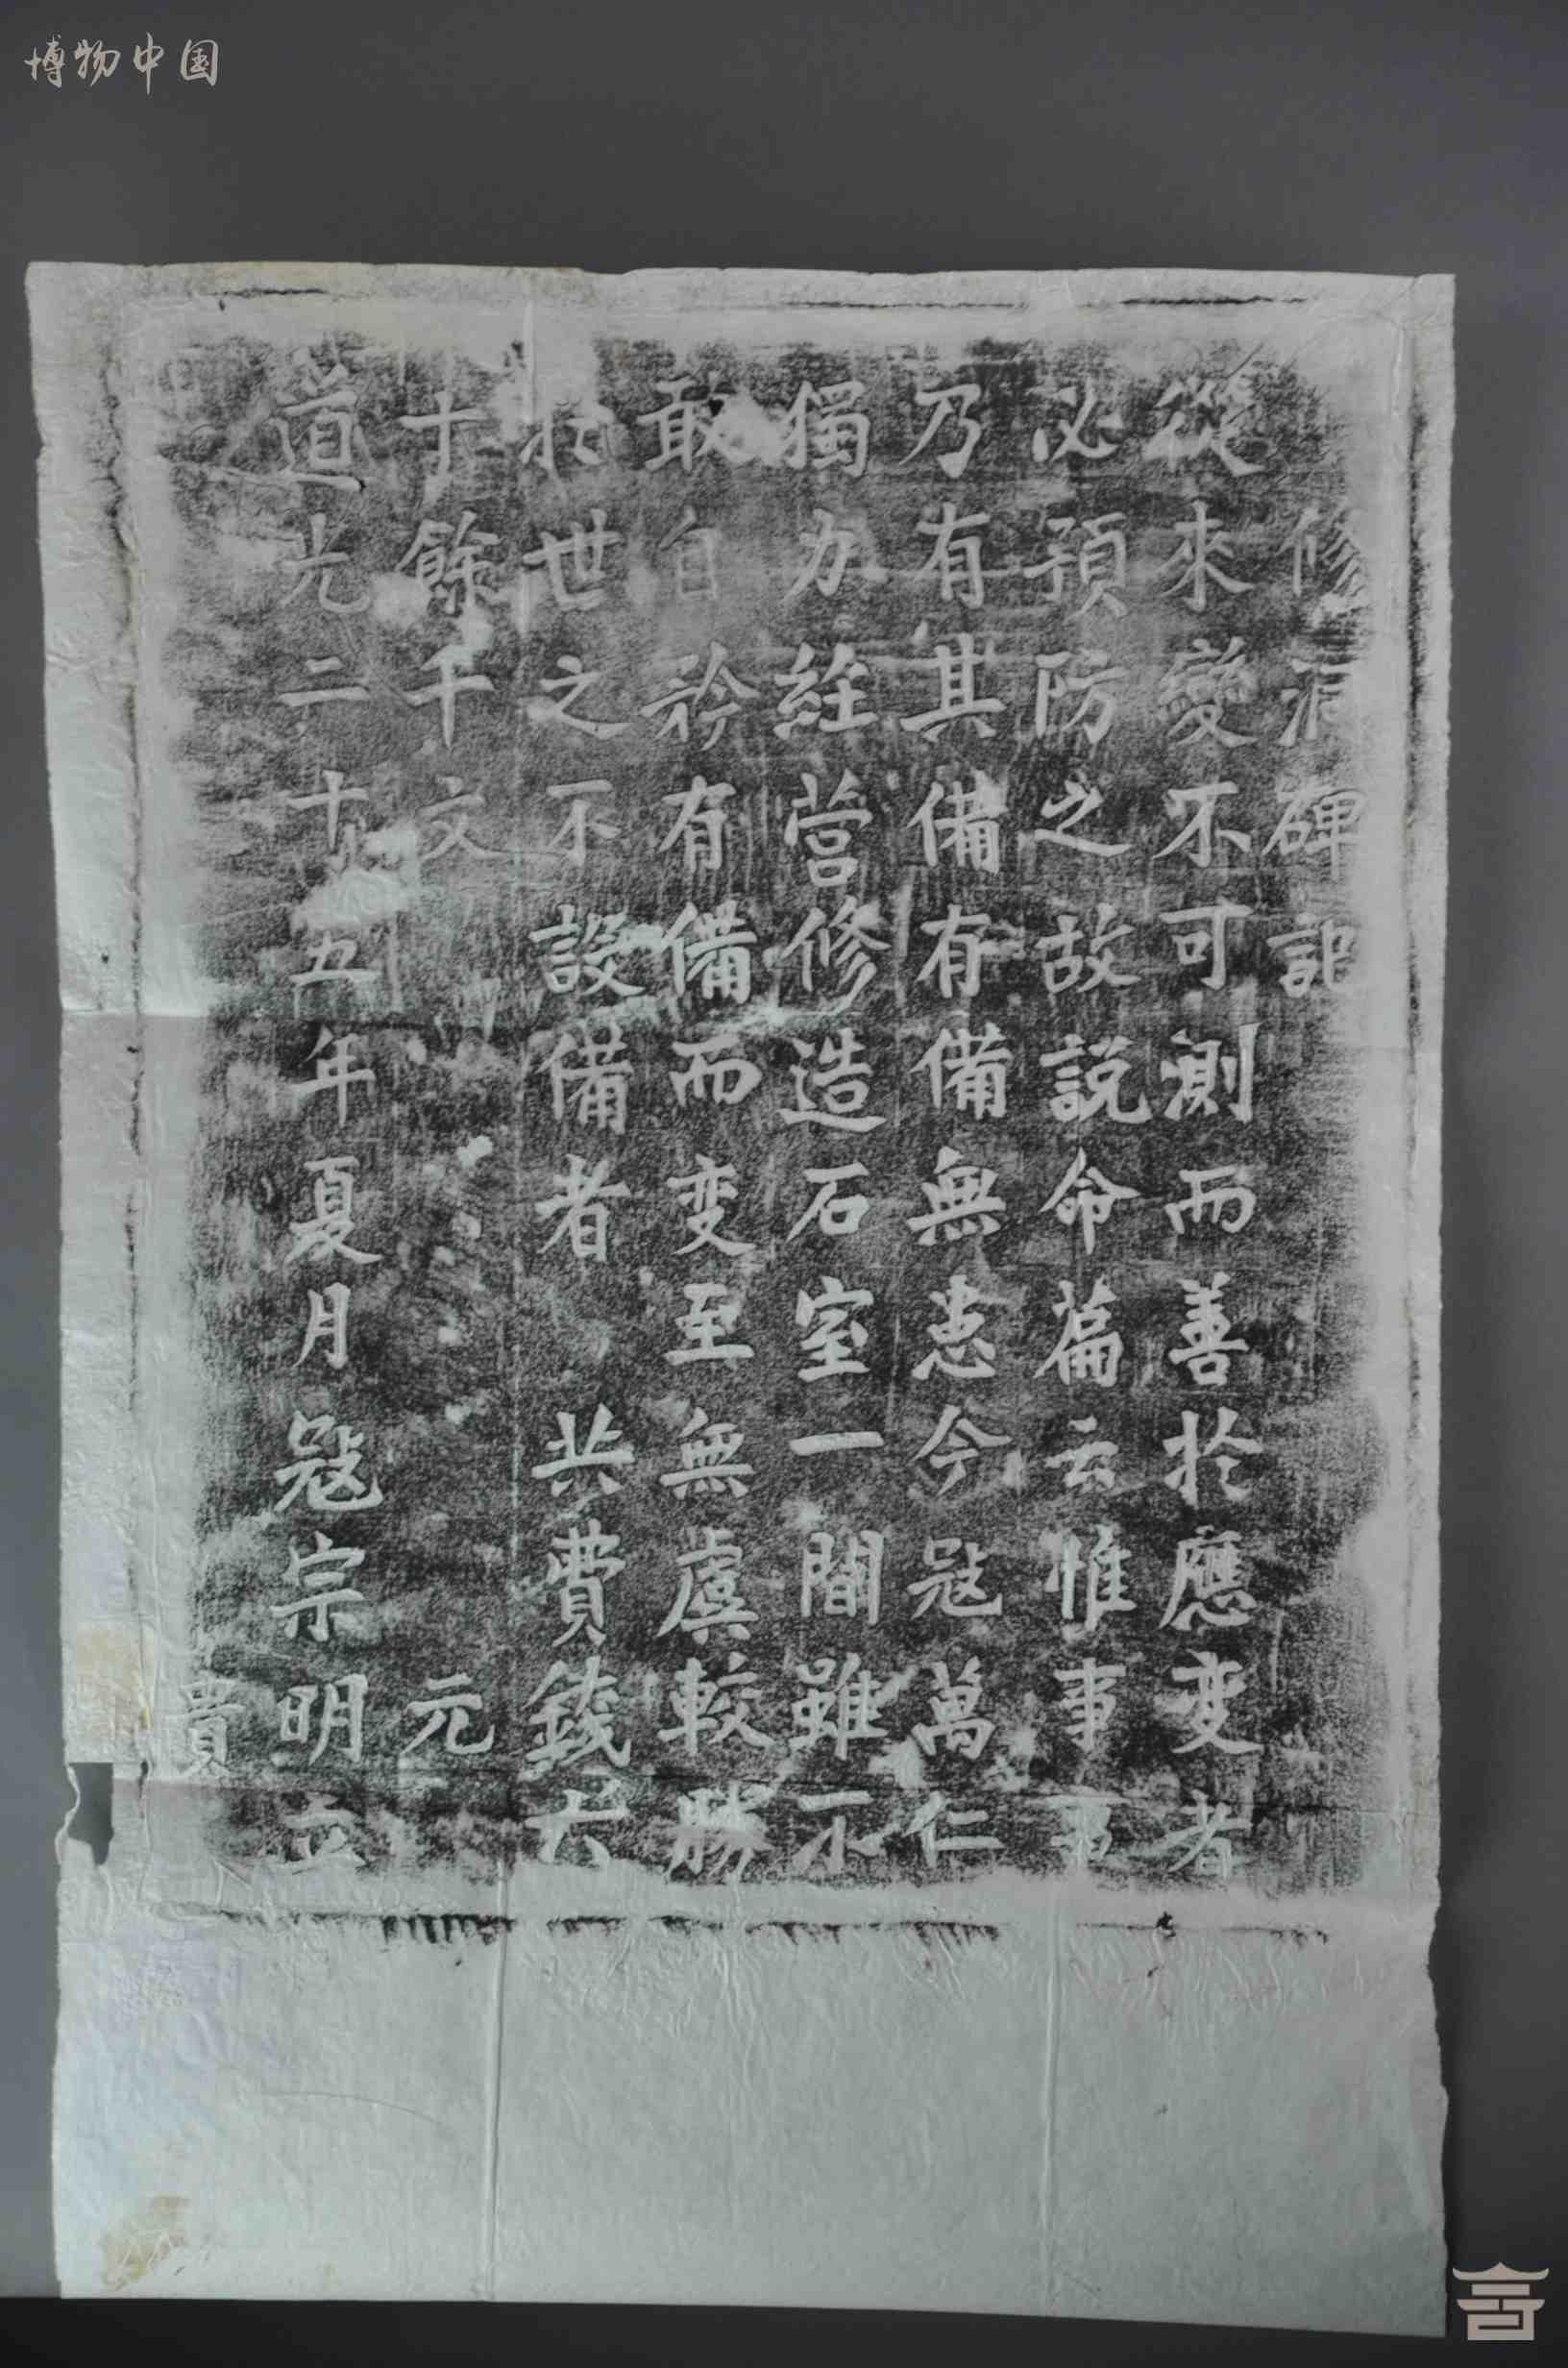 博物中国
修洞碑記
從來變不可測而善於應变者
必預防之故說命篇云惟事事
乃有其備有備無患今冦萬仁
獨力経营修造石室一間雖不
敢自矜有備而变至無虞較勝
於世之不設備者 共費錢六
十餘千文 元
道光二十五年夏月冦宗明立
貴